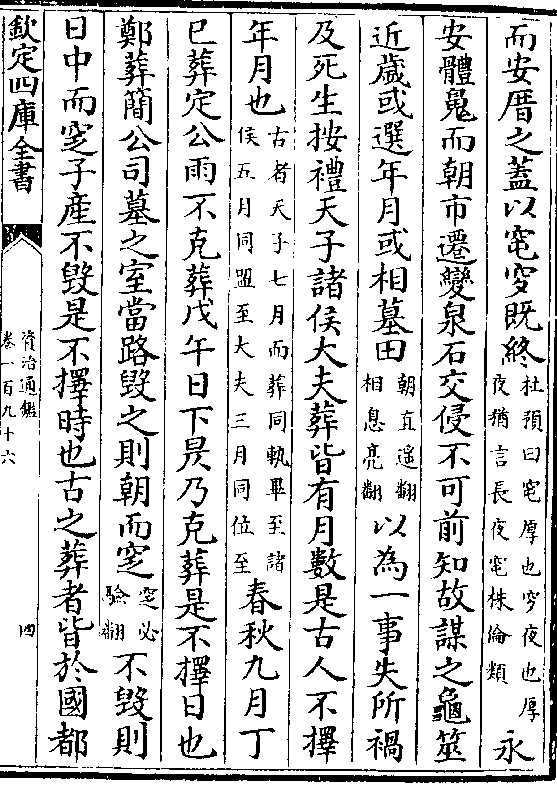 而安厝之蓋以窀穸既終杜預曰窀厚也穸夜也厚夜猶言長夜窀株倫類永
安體魄而朝市遷變泉石交侵不可前知故謀之龜筮
近歲或選年月或相墓田朝直遥翻相息亮翻以為一事失所禍
及死生按禮天子諸侯大夫葬皆有月數是古人不擇
年月也古者天子七月而葬同軌畢至諸侯五月同盟至大夫三月同位至春秋九月丁
巳葬定公雨不克葬戊午日下昃乃克葬是不擇日也
鄭葬簡公司墓之室當路毁之則朝而窆窆必驗翻不毁則
日中而窆子産不毁是不擇時也古之葬者皆於國都
欽定四庫全書
資治通鑑
卷一百九十六
四